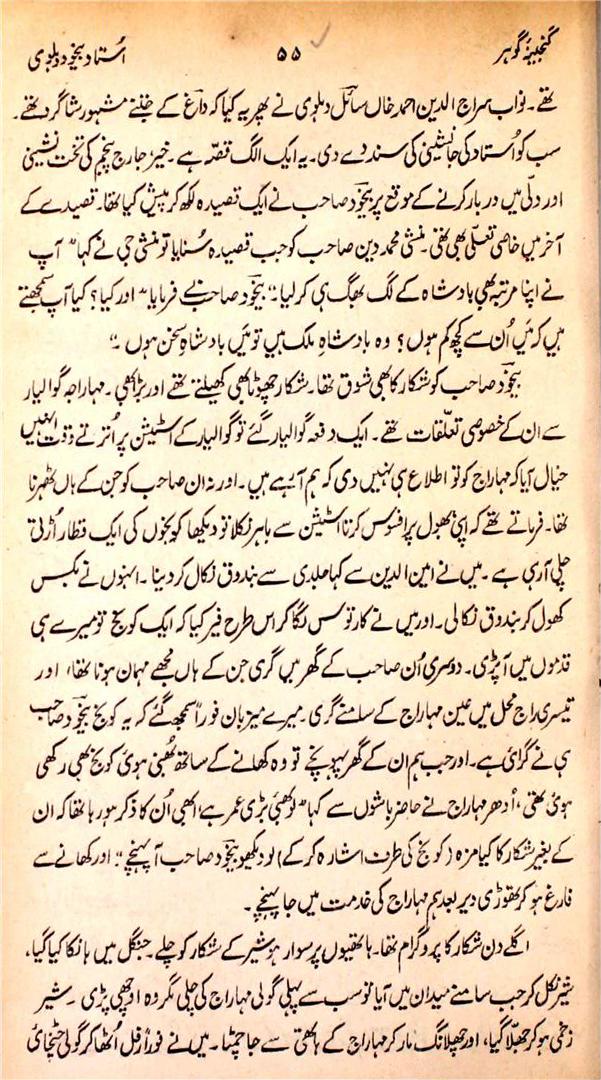 گنجینۂ گوہر ۵۵ اُستاد بیخود دہلوی
تھے۔ نواب سراج الدین احمد خاں سائل دہلوی نے پھر یہ کیا کہ داغ کے جتنے مشہور شاگرد تھے۔
سب کو اُستاد کی جانشینی کی سند دے دی۔ یہ ایک الگ قصّہ ہے۔ خیر جارج پنجم کی تخت نشینی
اور دلّی میں دربار کرنے کے موقع پر بیخود صاحب نے ایک قصیدہ لکھ کر پیش کیا تھا۔ قصیدے کے
آخر میں خاصی تعلّی بھی تھی۔ منشی محمد دین صاحب کو جب قصیدہ سُنایا تو منشی جی نے کہا "آپ
نے اپنا مرتبہ بھی بادشاہ کے لگ بھگ ہی کر لیا۔" بیخود صاحب نے فرمایا "اور کیا؟ کیا آپ سمجھتے
ہیں کہ مَیں اُن سے کچھ کم ہوں؟ وہ بادشاہِ ملک ہیں تو مَیں بادشاہِ سخن ہوں۔"
بیخود صاحب کو شکار کا بھی شوق تھا۔ شکار چھوٹا بھی کھیلتے تھے اور بڑا بھی۔ مہاراجہ گوالیار
سے ان کے خصوصی تعلّقات تھے۔ ایک دفعہ گوالیار گئے تو گوالیار کے اسٹیشن پر اُترتے وقت انھیں
خیال آیا کہ مہاراج کو تو اطلاع ہی نہیں دی کہ ہم آ رہے ہیں۔ اور نہ ان صاحب کو جن کے ہاں ٹھہرنا
تھا۔ فرماتے تھے کہ اپنی بھول پر افسوس کرتا اسٹیشن سے باہر نکلا تو دیکھا کونجوں کی ایک قطار اُڑتی
چلی آ رہی ہے۔ میں نے امین الدین سے کہا جلدی سے بندوق نکال کر دینا۔ انہوں نے بکس
کھول کر بندوق نکالی۔ اور میں نے کارتوس لگا کر اس طرح فیر کیا کہ ایک کونج تو میرے ہی
قدموں میں آ پڑی۔ دوسری اُن صاحب کے گھر میں گری جن کے ہاں مجھے مہمان ہونا تھا، اور
تیسری راج محل میں عین مہاراج کے سامنے گری۔ میرے میزبان فوراً سمجھ گئے کہ یہ کونج بیخود صاحب
ہی نے گرائی ہے۔ اور جب ہم ان کے گھر پہونچے تو وہ کھانے کے ساتھ بُھنی ہوئی کونج بھی رکھی
ہوئی تھی، اُدھر مہاراج نے حاضر باشوں سے کہا "لو بھئی بڑی عمر ہے، ابھی اُن کا ذکر ہو رہا تھا کہ ان
کے بغیر شکار کا کیا مزہ (کونج کی طرف اشارہ کر کے) لو دیکھو بیخود صاحب آ پہنچے۔" اور کھانے سے
فارغ ہو کر تھوڑی دیر بعد ہم مہاراج کی خدمت میں جا پہنچے۔
اگلے دن شکار کا پروگرام تھا۔ ہاتھیوں پر سوار ہو شیر کے شکار کو چلے۔ جنگل میں ہانکا کیا گیا،
شیر نکل کر جب سامنے میدان میں آیا تو سب سے پہلی گولی مہاراج کی چلی مگر وہ اوچھی پڑی۔ شیر
زخمی ہو کر جھلّا گیا، اور چھلانگ مار کر مہاراج کے ہاتھی سے جا چمٹا۔ میں نے فوراً رفل اُٹھا کر گولی جنچائی